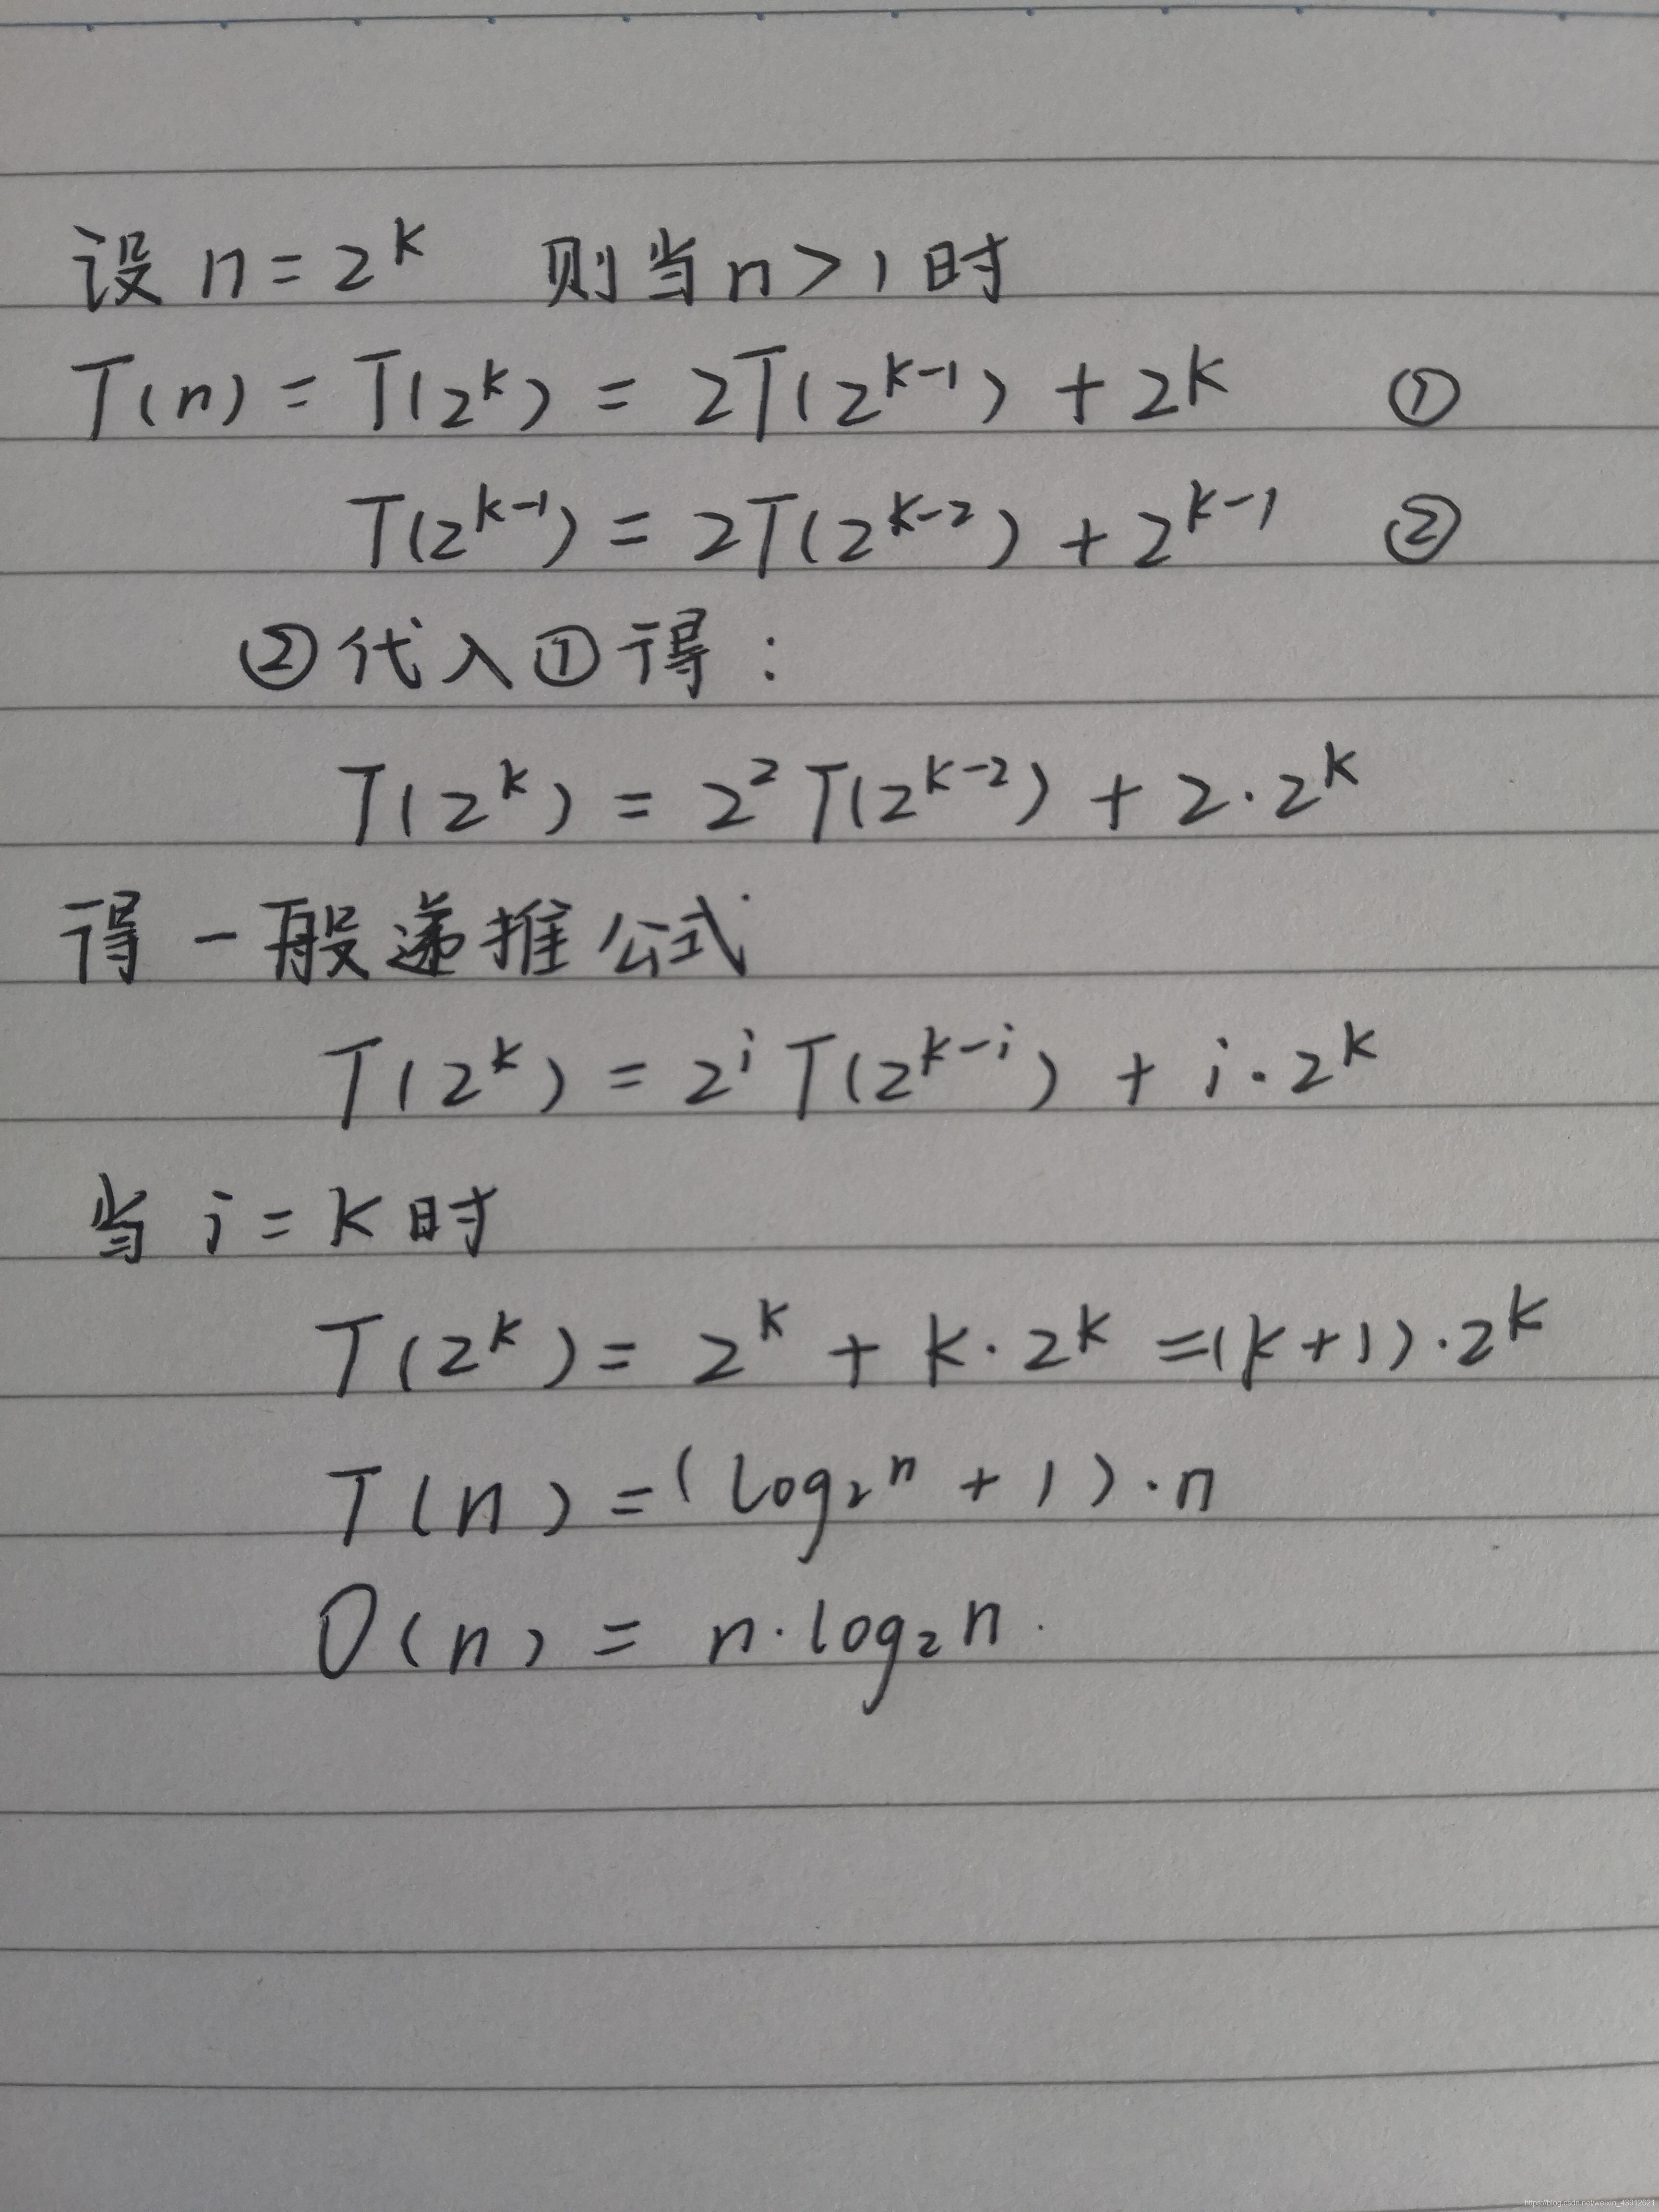 设 n = 2^k 则当 n > 1 时
T(n) = T(2^k) = 2T(2^{k-1}) + 2^k ①
T(2^{k-1}) = 2T(2^{k-2}) + 2^{k-1} ②
②代入①得:
T(2^k) = 2^2 T(2^{k-2}) + 2·2^k
得一般递推公式
T(2^k) = 2^i T(2^{k-i}) + i·2^k
当 i = k 时
T(2^k) = 2^k + k·2^k = (k+1)·2^k
T(n) = (log₂ⁿ + 1)·n
O(n) = n·log₂n.
https://blog.csdn.net/weixin_43912621